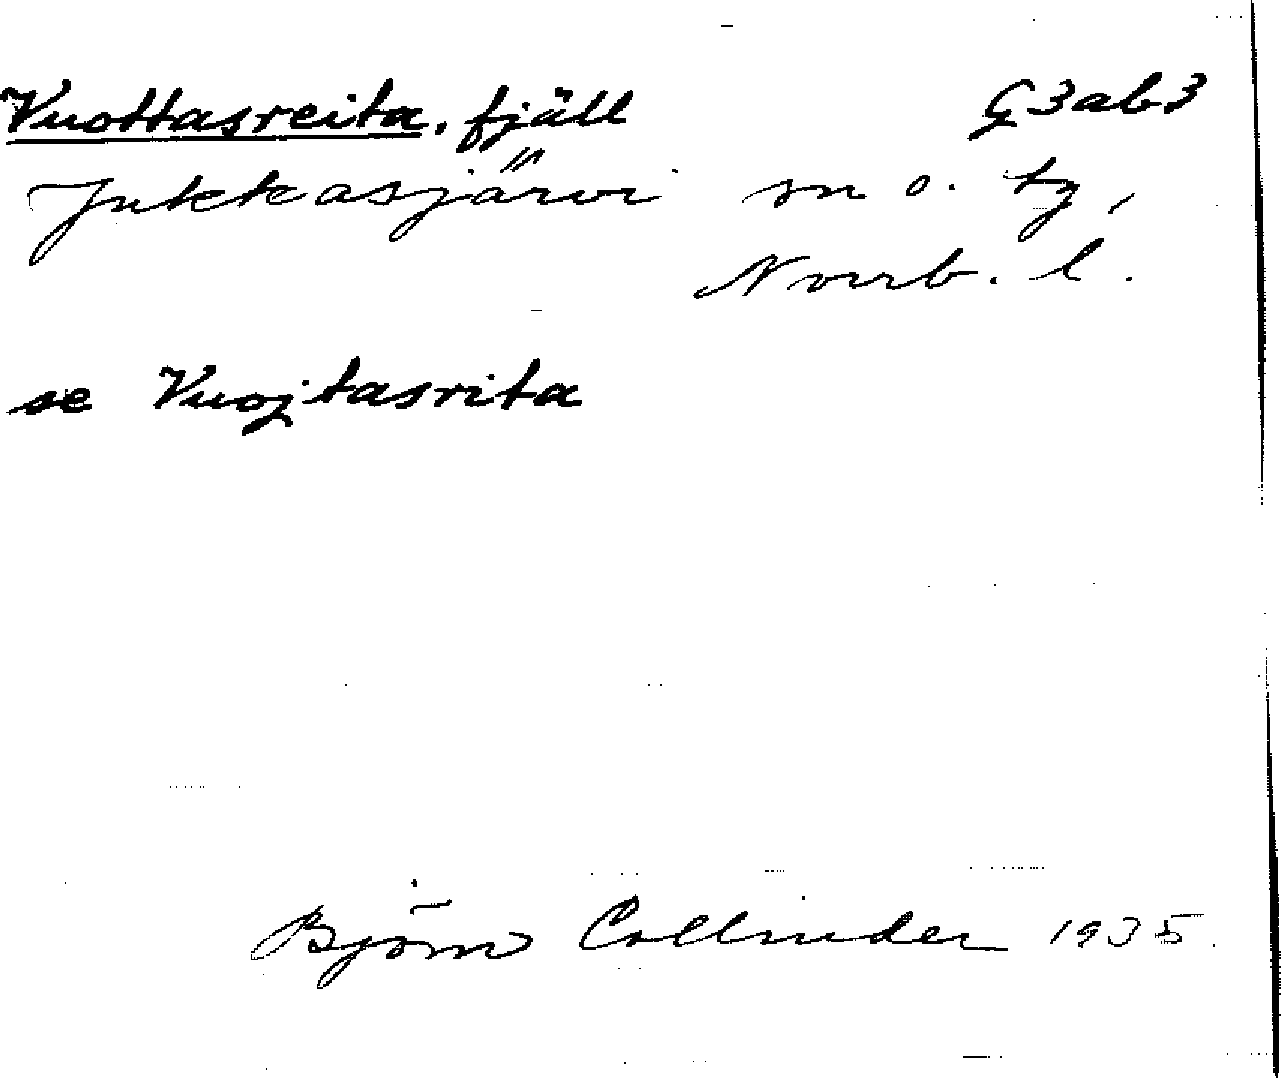 Vuottasreita, fjäll G3ab3
Jukkasjärvi sn o. tg,
Norrb. l.
se Vuojtasrita
Björn Collinder 1935.